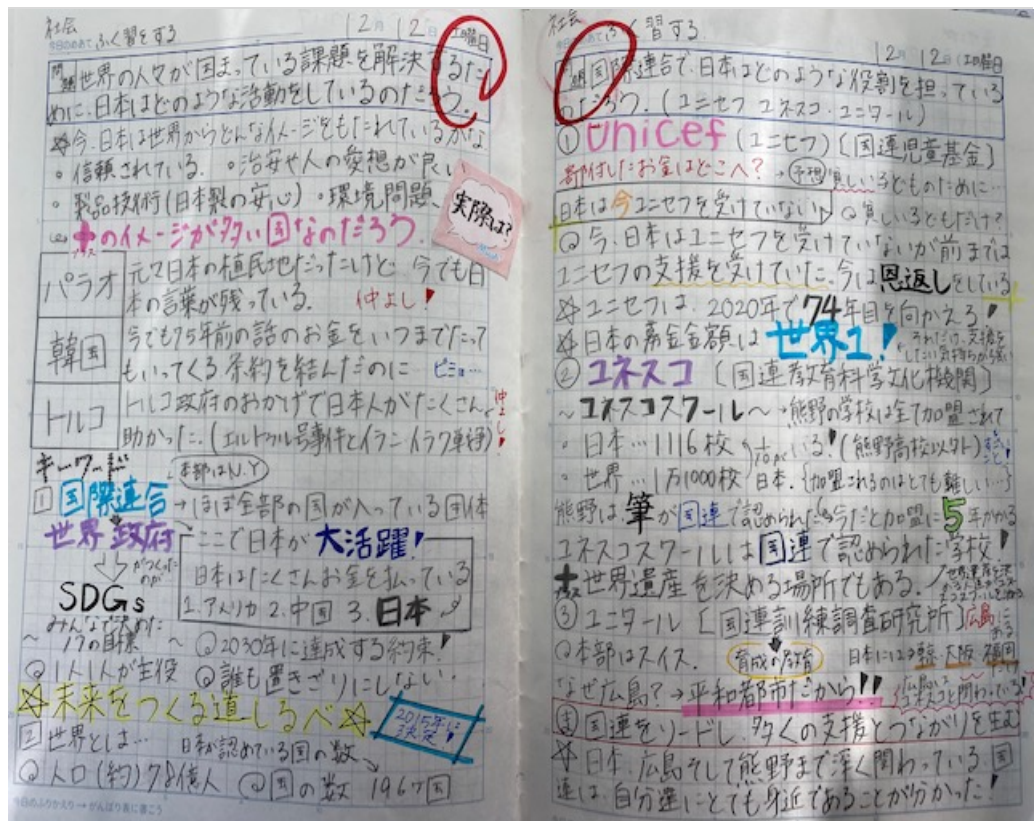 社会
今日のめあて ふく習をする 12月12日(土)曜日
問題 世界の人々が困まっている課題を解決するた
めに、日本はどのような活動をしているのだろう。
☆今、日本は世界からどんなイメージをもたれているかな
○信頼されている。 ○治安や人の愛想が良い
○製品技術(日本製の安心) ○環境問題、
実際は?
→+プラスのイメージが多い国なのだろう
パラオ 元々日本の植民地だったけど、今でも日
本の言葉が残っている。 仲よし!
韓国 今でも75年前の話のお金をいつまでたって
もいってくる条約を結んだのに ビミョ…
トルコ トルコ政府のおかげで日本人がたくさん
助かった。(エルトゥルル号事件とイラン・イラク戦争) 仲よし!
キーワード 本部はN.Y
1 国際連合→ほぼ全部の国が入っている団体
世界政府 ここで日本が大活躍!
がつくったのが 日本はたくさんお金を払っている
SDGs 1.アメリカ 2.中国 3.日本
みんなで決めた
~17の目標~ ○2030年に達成する約束!
○1人1人が主役 ○誰も置きざりにしない。
☆未来をつくる道しるべ☆ 2015年に決定!
2 世界とは… 日本が認めている国の数
○人口(約)78億人 ○国の数 196ヶ国
今日のふりかえり→がんばり表に書こう
社会
ふく習する 12月12日(土)曜日
問題 国際連合で、日本はどのような役割を担っている
のだろう。(ユニセフ ユネスコ・ユニタール)
① Unicef (ユニセフ)〔国連児童基金〕
寄付したお金はどこへ?→予想 貧しい子どものために…
日本は今ユニセフを受けていない ○貧しい子どもだけ?
○今、日本はユニセフを受けていないが前までは
ユニセフの支援を受けていた。今は恩返しをしている
☆ユニセフは、2020年で74年目を向かえる!
☆日本の募金金額は世界1! それだけ、支援をしたい気持ちが強い
② ユネスコ〔国連教育科学文化機関〕
~ユネスコスクール~→熊野の学校は全て加盟されて
○日本…1116校 いる!(熊野高校以外)
○世界…1万1000校 日本.{加盟されるのはとても難しい…}
熊野は筆が国連で認められたら今だと加盟に5年かかる
ユネスコスクールは国連で認められた学校!
+プラス 世界遺産を決める場所でもある。
③ ユニタール〔国連訓練調査研究所〕広島にある
○本部はスイス. 育成の教育 日本には 大阪 福岡
なぜ広島?→平和都市だから!!
ま 国連をリードし、多くの支援とつながりを生む
☆日本、広島そして熊野まで深く関わっている。国
連は、自分達にとても身近であることが分かった!